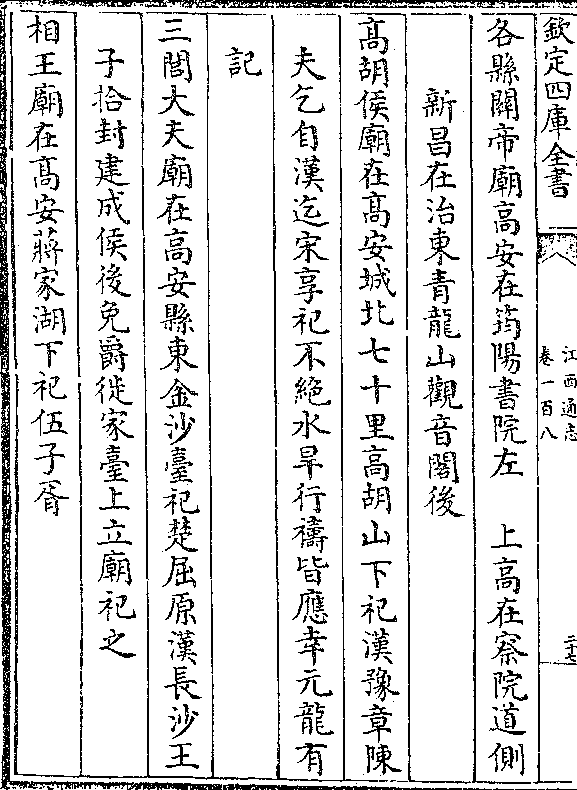 欽定四庫全書
江西通志
卷一百八
二十七
各縣關帝廟高安在筠陽書院左　上高在察院道側
新昌在治東青龍山觀音閣後
高胡侯廟在高安城北七十里高胡山下祀漢豫章陳
夫乞自漢迄宋享祀不絶水旱行禱皆應幸元龍有
記
三閭大夫廟在高安縣東金沙臺祀楚屈原漢長沙王
子拾封建成侯後免爵徙家臺上立廟祀之
相王廟在高安蔣家湖下祀伍子胥